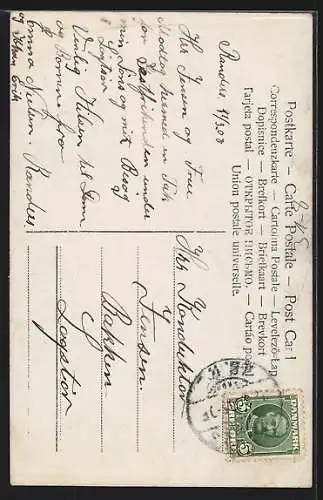 Postkarte — Carte Postale — Post Card
Correspondenzkarte — Cartolina Postale — Levelező-Lap
Dopisnice — Brefkort — Briefkaart — Brevkort
Tarjeta postal — ОТКРЫТОЕ ПИСЬМО. — Cartão postal
Union postale universelle.
Randers 1908
Hrs Jensen og Frue
Modtag hermed en Tak
for under
min Søns og mit Besøg
i Løgstør
Venlig Hilsen til Dem
og Børnene fra
Emma Nielsen. Randers.
og
Hr
Hrs Konduktør
Jensen.
Bakken
Løgstør
DANMARK
5 5